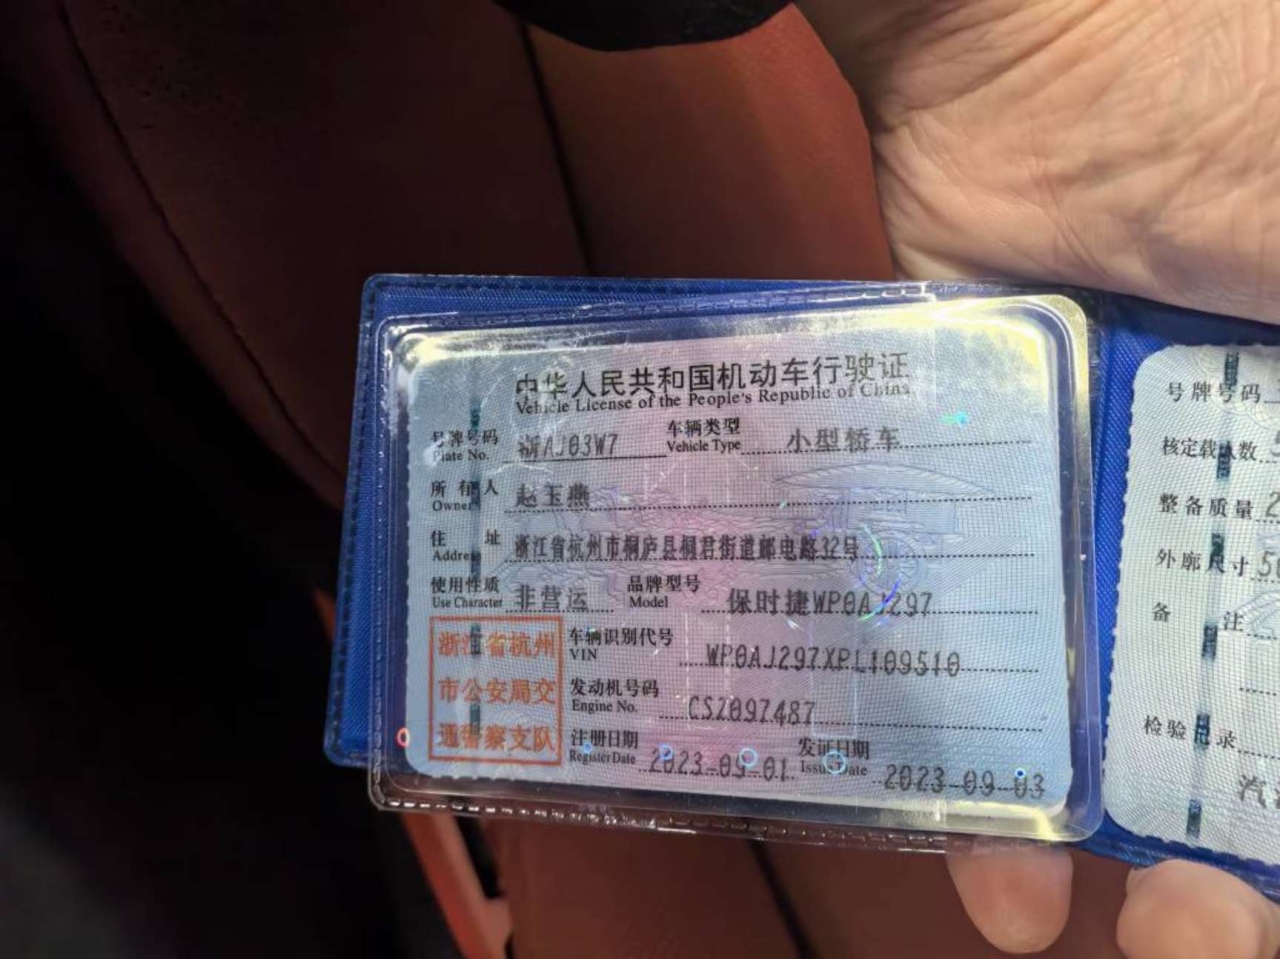 中华人民共和国机动车行驶证
Vehicle License of the People's Republic of China
号牌号码 浙AJ03W7 车辆类型 小型轿车
Plate No. Vehicle Type
所有人 赵玉燕
Owner
住址 浙江省杭州市桐庐县桐君街道邮电路32号
Address
使用性质 非营运 品牌型号 保时捷WP0AJ297
Use Character Model
浙江省杭州
市公安局交
通警察支队
车辆识别代号 WP0AJ297XPL109510
VIN
发动机号码 CS2097487
Engine No.
注册日期 2023-09-01 发证日期 2023-09-03
Register Date Issue Date
号牌号码
核定载人数
整备质量 2
外廓尺寸
备注
检验记录
汽